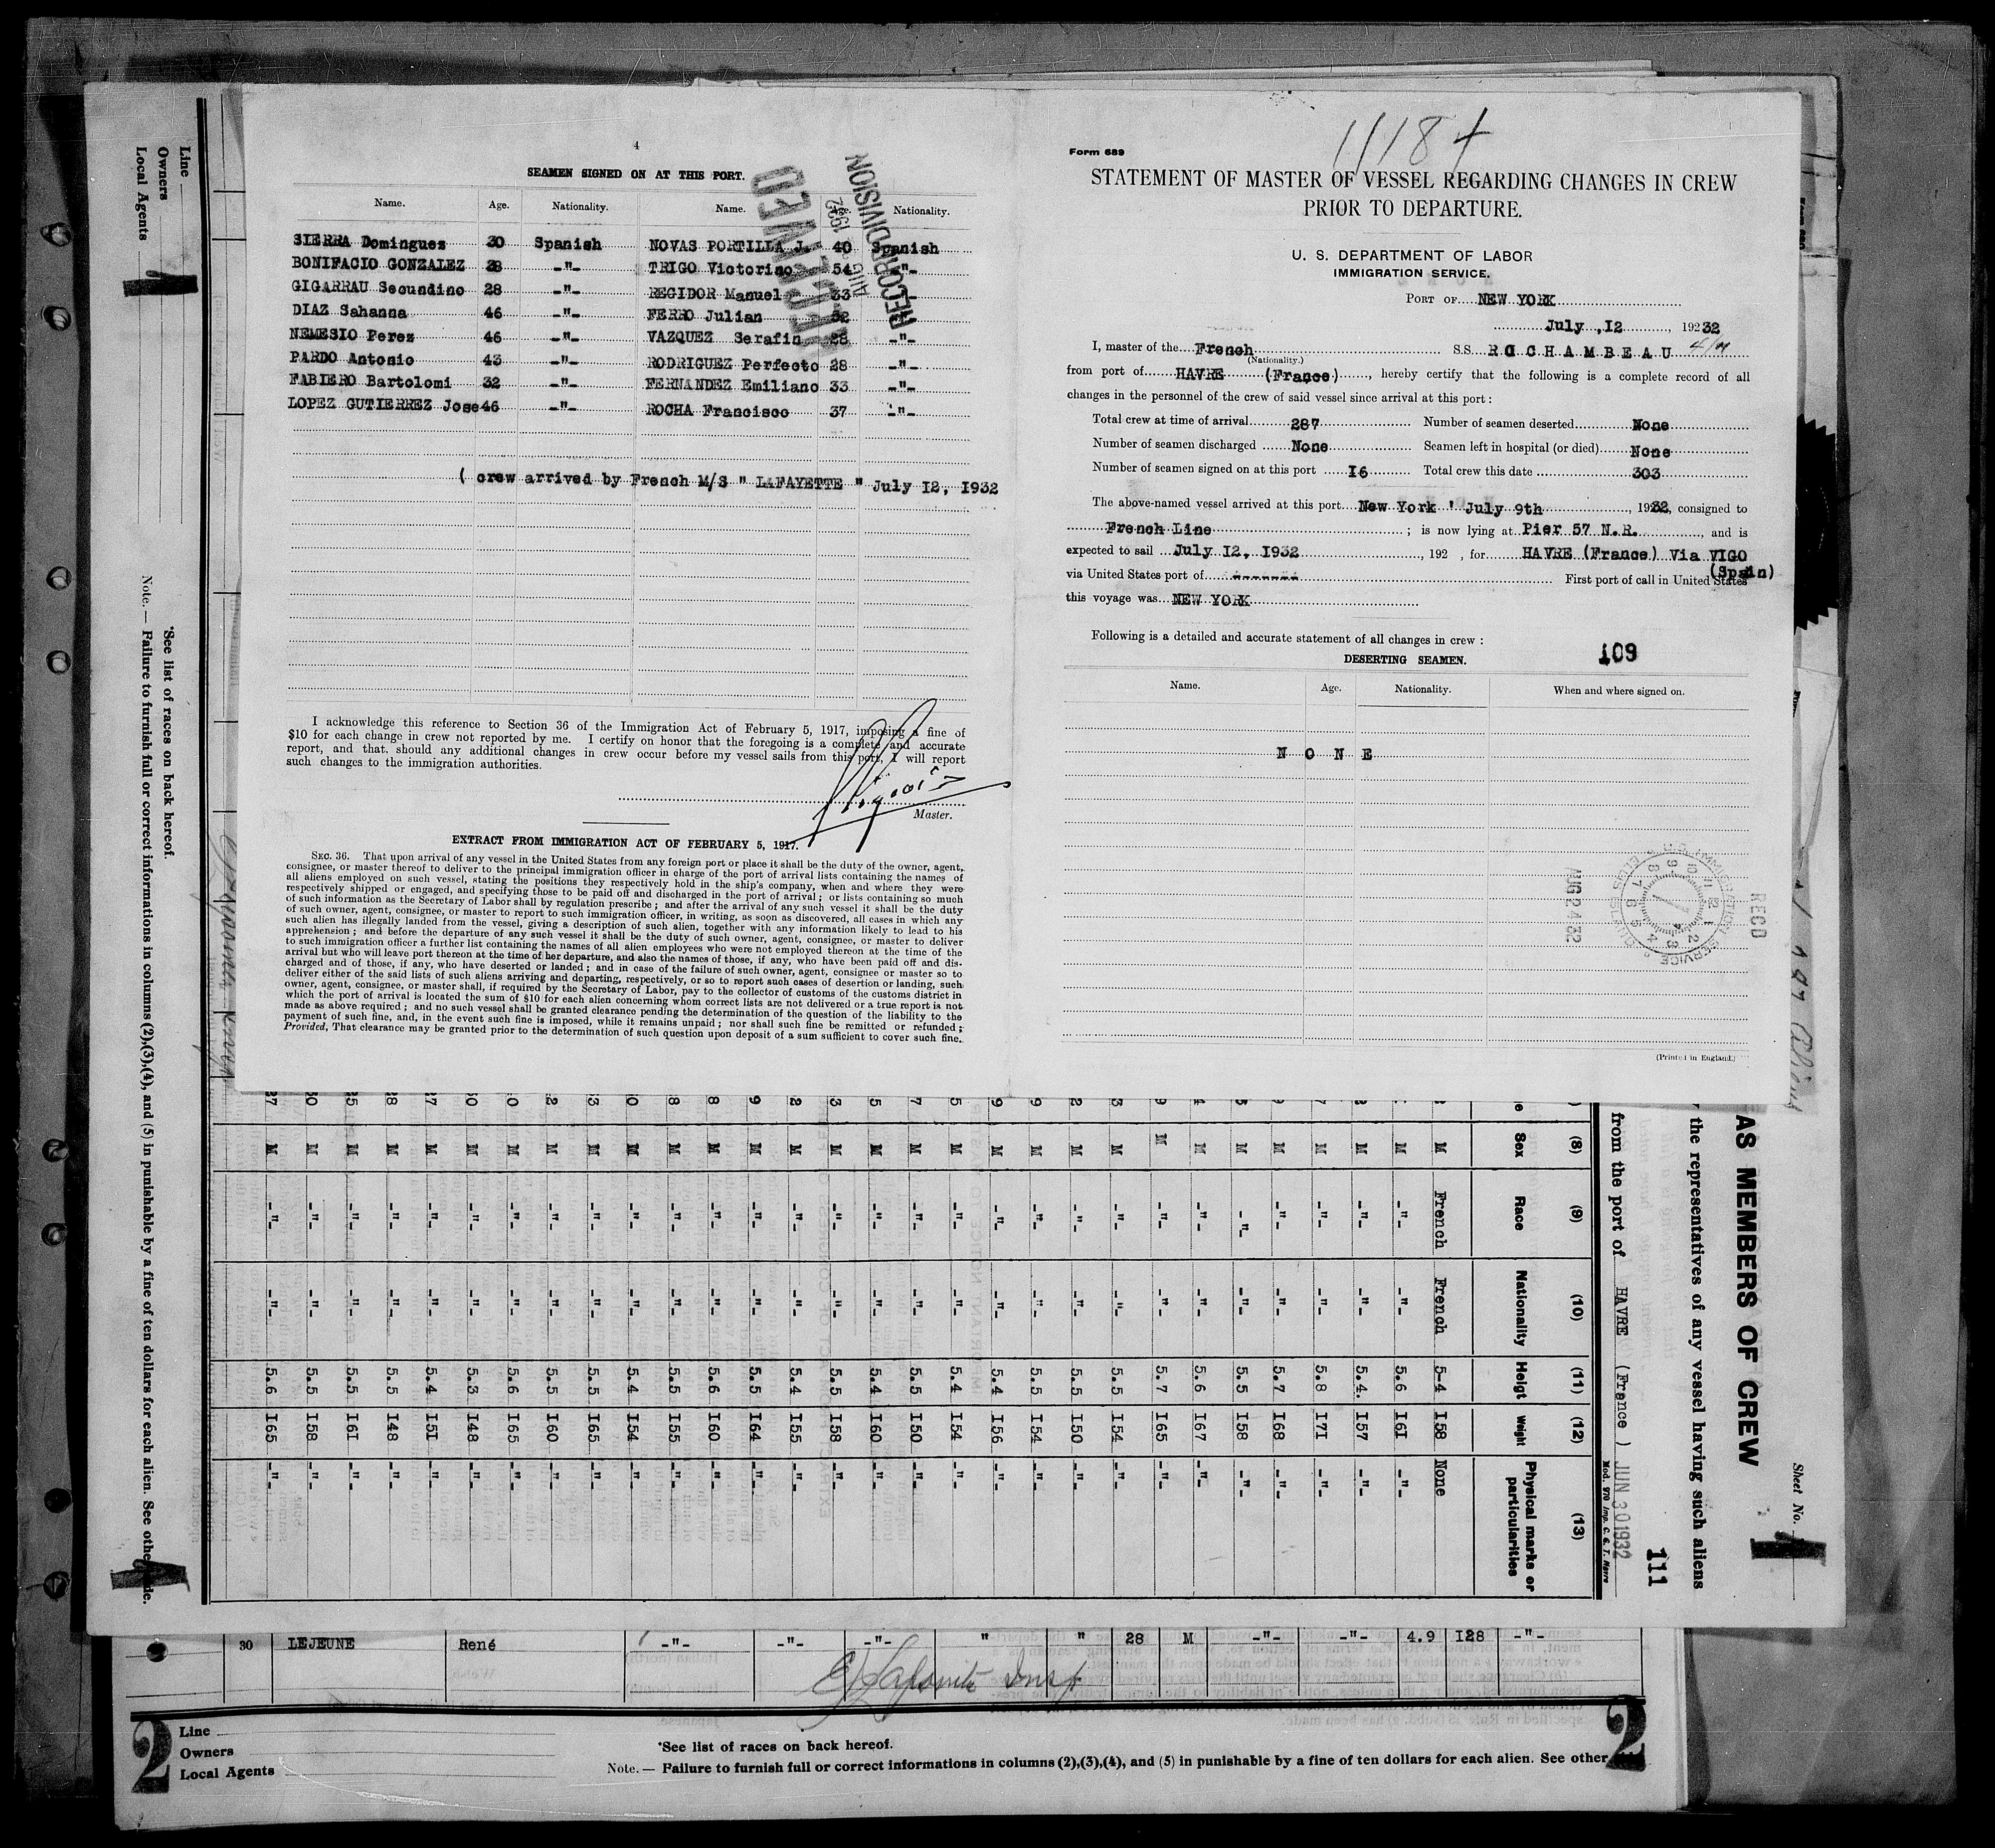 4
SEAMEN SIGNED ON AT THIS PORT.
Name. Age. Nationality. Name. Age. Nationality.
SIERRA Dominguez 30 Spanish NOVAS PORTILLA J. 40 Spanish
BONIFACIO GONZALEZ 38 -"- TRIGO Victorino 54 -"-
GIGARRAU Secundino 28 -"- REGIDOR Manuel 33
DIAZ Sahanna 46 -"- FERRO Julian 32
NEMESIO Perez 46 -"- VAZQUEZ Serafin 28 -"-
PARDO Antonio 43 -"- RODRIGUEZ Perfecto 28 -"-
FABIERO Bartolomi 32 -"- FERNANDEZ Emiliano 33 -"-
LOPEZ GUTIERREZ Jose 46 -"- ROCHA Francisco 37 -"-
( crew arrived by French M/S " LAFAYETTE " July I2, I932
RECEIVED
AUG 1932
RECORD DIVISION
I acknowledge this reference to Section 36 of the Immigration Act of February 5, 1917, imposing a fine of
$10 for each change in crew not reported by me. I certify on honor that the foregoing is a complete and accurate
report, and that, should any additional changes in crew occur before my vessel sails from this port, I will report
such changes to the immigration authorities.
Master.
EXTRACT FROM IMMIGRATION ACT OF FEBRUARY 5, 1917.
SEC. 36. That upon arrival of any vessel in the United States from any foreign port or place it shall be the duty of the owner, agent,
consignee, or master thereof to deliver to the principal immigration officer in charge of the port of arrival lists containing the names of
all aliens employed on such vessel, stating the positions they respectively hold in the ship's company, when and where they were
respectively shipped or engaged, and specifying those to be paid off and discharged in the port of arrival; or lists containing so much
of such information as the Secretary of Labor shall by regulation prescribe; and after the arrival of any such vessel it shall be the duty
of such owner, agent, consignee, or master to report to such immigration officer, in writing, as soon as discovered, all cases in which any
such alien has illegally landed from the vessel, giving a description of such alien, together with any information likely to lead to his
apprehension; and before the departure of any such vessel it shall be the duty of such owner, agent, consignee, or master to deliver
to such immigration officer a further list containing the names of all alien employees who were not employed thereon at the time of the
arrival but who will leave port thereon at the time of her departure, and also the names of those, if any, who have been paid off and dis-
charged and of those, if any, who have deserted or landed; and in case of the failure of such owner, agent, consignee or master so to
deliver either of the said lists of such aliens arriving and departing, respectively, or so to report such cases of desertion or landing, such
owner, agent, consignee, or master shall, if required by the Secretary of Labor, pay to the collector of customs of the customs district in
which the port of arrival is located the sum of $10 for each alien concerning whom correct lists are not delivered or a true report is not
made as above required; and no such vessel shall be granted clearance pending the determination of the question of the liability to the
payment of such fine, and, in the event such fine is imposed, while it remains unpaid; nor shall such fine be remitted or refunded;
Provided, That clearance may be granted prior to the determination of such question upon deposit of a sum sufficient to cover such fine.
Form 689
STATEMENT OF MASTER OF VESSEL REGARDING CHANGES IN CREW
PRIOR TO DEPARTURE.
U. S. DEPARTMENT OF LABOR
IMMIGRATION SERVICE.
PORT OF NEW YORK
July ,I2 , 19232
I, master of the French S.S. ROCHAMBEAU
(Nationality.)
from port of HAVRE (France) , hereby certify that the following is a complete record of all
changes in the personnel of the crew of said vessel since arrival at this port:
Total crew at time of arrival 287 Number of seamen deserted None
Number of seamen discharged None Seamen left in hospital (or died) None
Number of seamen signed on at this port I6 Total crew this date 303
The above-named vessel arrived at this port New York ' July 9th , 19232, consigned to
French Line ; is now lying at Pier 57 N.R. , and is
expected to sail July I2, I932 , 192 , for HAVRE (France) Via VIGO
(Spain)
via United States port of ------- First port of call in United States
this voyage was NEW YORK
Following is a detailed and accurate statement of all changes in crew:
109
DESERTING SEAMEN.
Name. Age. Nationality. When and where signed on.
N O N E
REC'D
AUG 24 32
(Printed in England.)
Line
Owners
Local Agents
*See list of races on back hereof.
Note.— Failure to furnish full or correct informations in columns (2),(3),(4), and (5) in punishable by a fine of ten dollars for each alien. See other side.
1
1
Sheet No. 1
AS MEMBERS OF CREW
the representatives of any vessel having such aliens
111
from the port of HAVRE (France ) JUN 30 1932
Mod. 970 Imp. C. G. T. Havre
(8) (9) (10) (11) (12) (13)
Sex Race Nationality Heigt Weight Physical marks or particularities
M French French 5-4 I58 None
M -"- -"- 5.6 I6I -"-
M -"- -"- 5.4. I57 -"-
M -"- -"- 5.8 I7I -"-
M -"- -"- 5.7 I68 -"-
M -"- -"- 5.5 I58 -"-
M -"- -"- 5.6 I67 -"-
M -"- -"- 5.7 I65 -"-
M -"- -"- 5.5 I54 -"-
M -"- -"- 5.5 I50 -"-
M -"- -"- 5.5 I54 -"-
M -"- -"- 5.4 I56 -"-
M -"- -"- 5.4 I54 -"-
M -"- -"- 5.5 I50 -"-
M -"- -"- 5.4 I60 -"-
M -"- -"- 5.5 I58 -"-
M -"- -"- 5.4 I55 -"-
M -"- -"- 5.5 I64 -"-
M -"- -"- 5.6 I60 -"-
M -"- -"- 5.5 I55 -"-
M -"- -"- 5.4 I54 -"-
M -"- -"- 5.5 I65 -"-
M -"- -"- 5.5 I60 -"-
M -"- -"- 5.6 I65 -"-
M -"- -"- 5.3 I48 -"-
M -"- -"- 5.4 I5I -"-
M -"- -"- 5.5 I48 -"-
M -"- -"- 5.5 I6I -"-
M -"- -"- 5.5 I58 -"-
M -"- -"- 5.6 I65 -"-
30 LEJEUNE René -"- -"- -"- " " 28 M -"- -"- 4.9 I28 -"-
2
Line
Owners
Local Agents
*See list of races on back hereof.
Note.— Failure to furnish full or correct informations in columns (2),(3),(4), and (5) in punishable by a fine of ten dollars for each alien. See other
2